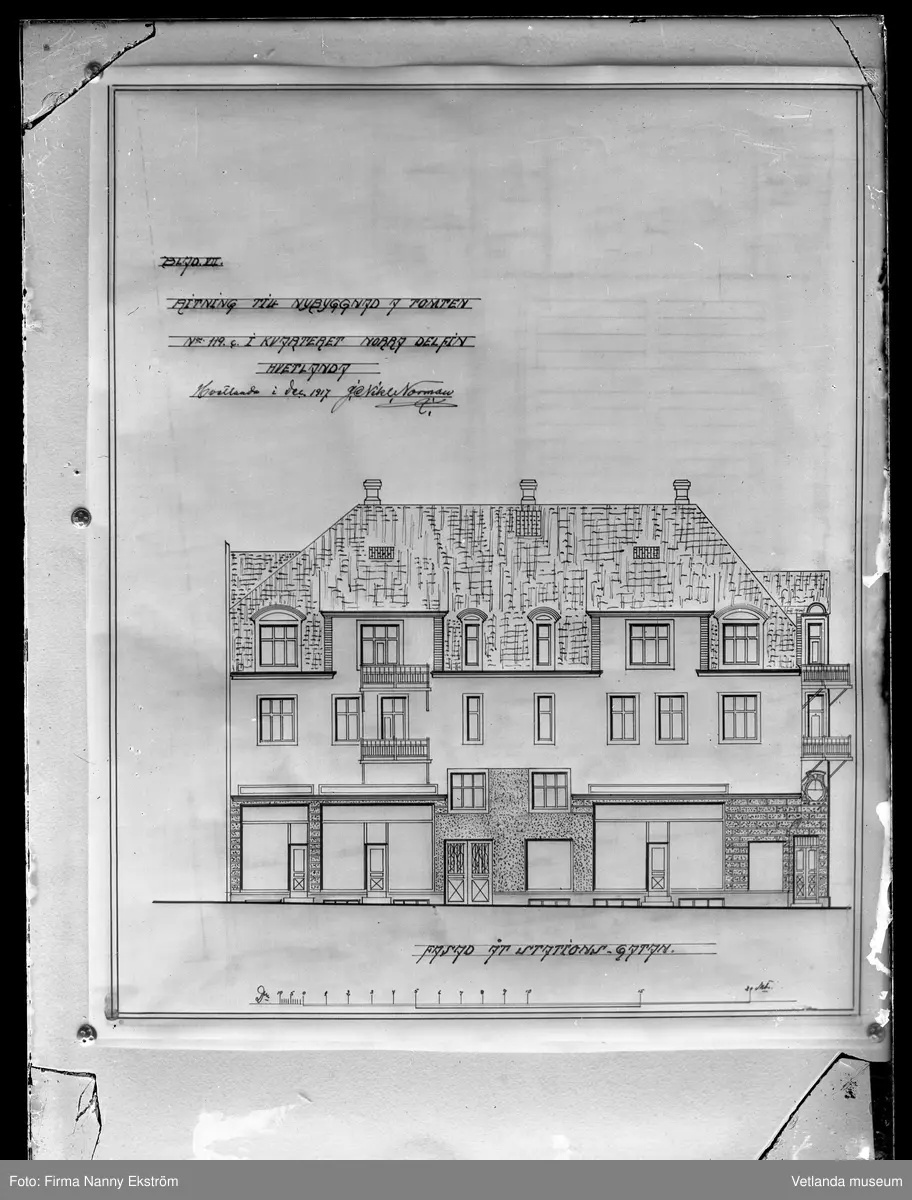 BLAD. VII.
RITNING TILL NYBYGGNAD A TOMTEN
No 119. c. I KVARTERET NORRA DELFIN
HVETLANDA
Hvetlanda i Dec. 1917 Norman
FASAD ÅT STATIONS-GATAN.
10 5 0 1 2 3 4 5 6 7 8 9 10 15 20
Foto: Firma Nanny Ekström
Vetlanda museum